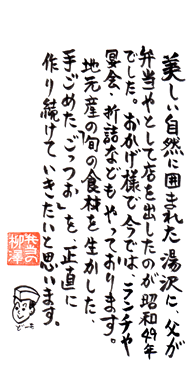 美しい自然に囲まれた湯沢に、父が
弁当やとして店を出したのが昭和49年
でした。おかげ様で今では、ランチや
宴会、折詰などもやっております。
地元産の旬の食材を生かした、
手ごめた「ごっつお」を、正直に
作り続けていきたいと思います。
弁当の
柳澤
どーも